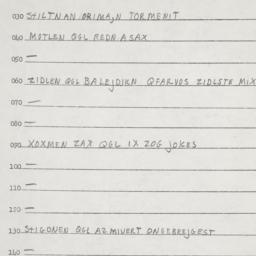 030 STILTNAN ORIMAJN TORMENIT
040 MOTLEN QGL REDNASAX
050 —
060 ZIDLEN QGL BALEJDIKN QFARVOS ZIDLSTE MIX
070 —
080 —
090 XOXMEN ZAX QGL IX ZOG JOKES
100 —
110 —
120 —
130 STIGONEN QGL AZMIVERT ONGEBREJGEST
140 —